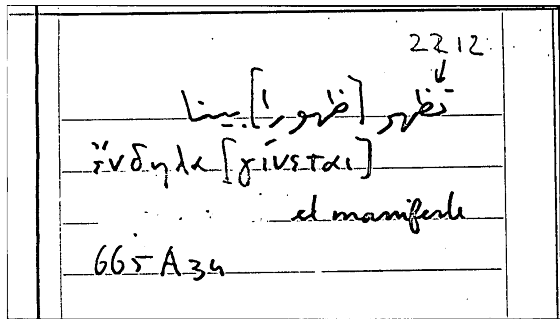 2212
↓
تظهر [ظهورا] بينا
ἔνδηλα [γίνεται]
et manifeste
665 A 34